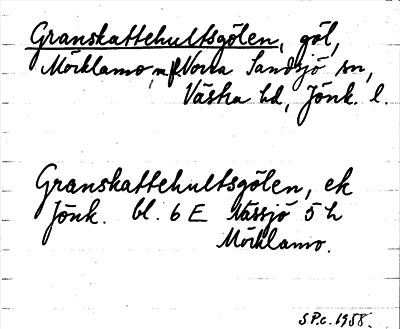 Granskattehultsgölen, göl,
Mörklamo, Norra Sandsjö sn,
Västra hd, Jönk. l.
Granskattehultsgölen, ek
Jönk. bl. 6 E Nässjö 5 h
Mörklamo.
S.P.c. 1958.